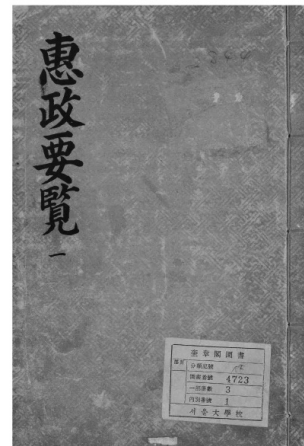 惠政要覽
一
奎章閣圖書
分類記號
圖書番號 4723
一部冊數 3
內別番號 1
서울大學校